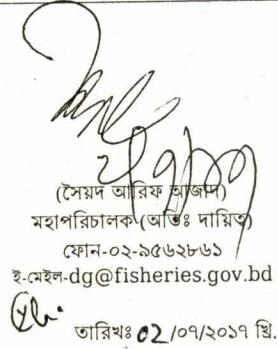 (সৈয়দ আরিফ আজাদ)
মহাপরিচালক (অতিঃ দায়িত্ব)
ফোন-০২-৯৫৬২৮৬১
ই-মেইল-dg@fisheries.gov.bd
তারিখঃ 02/০৭/২০১৭ খ্রি.